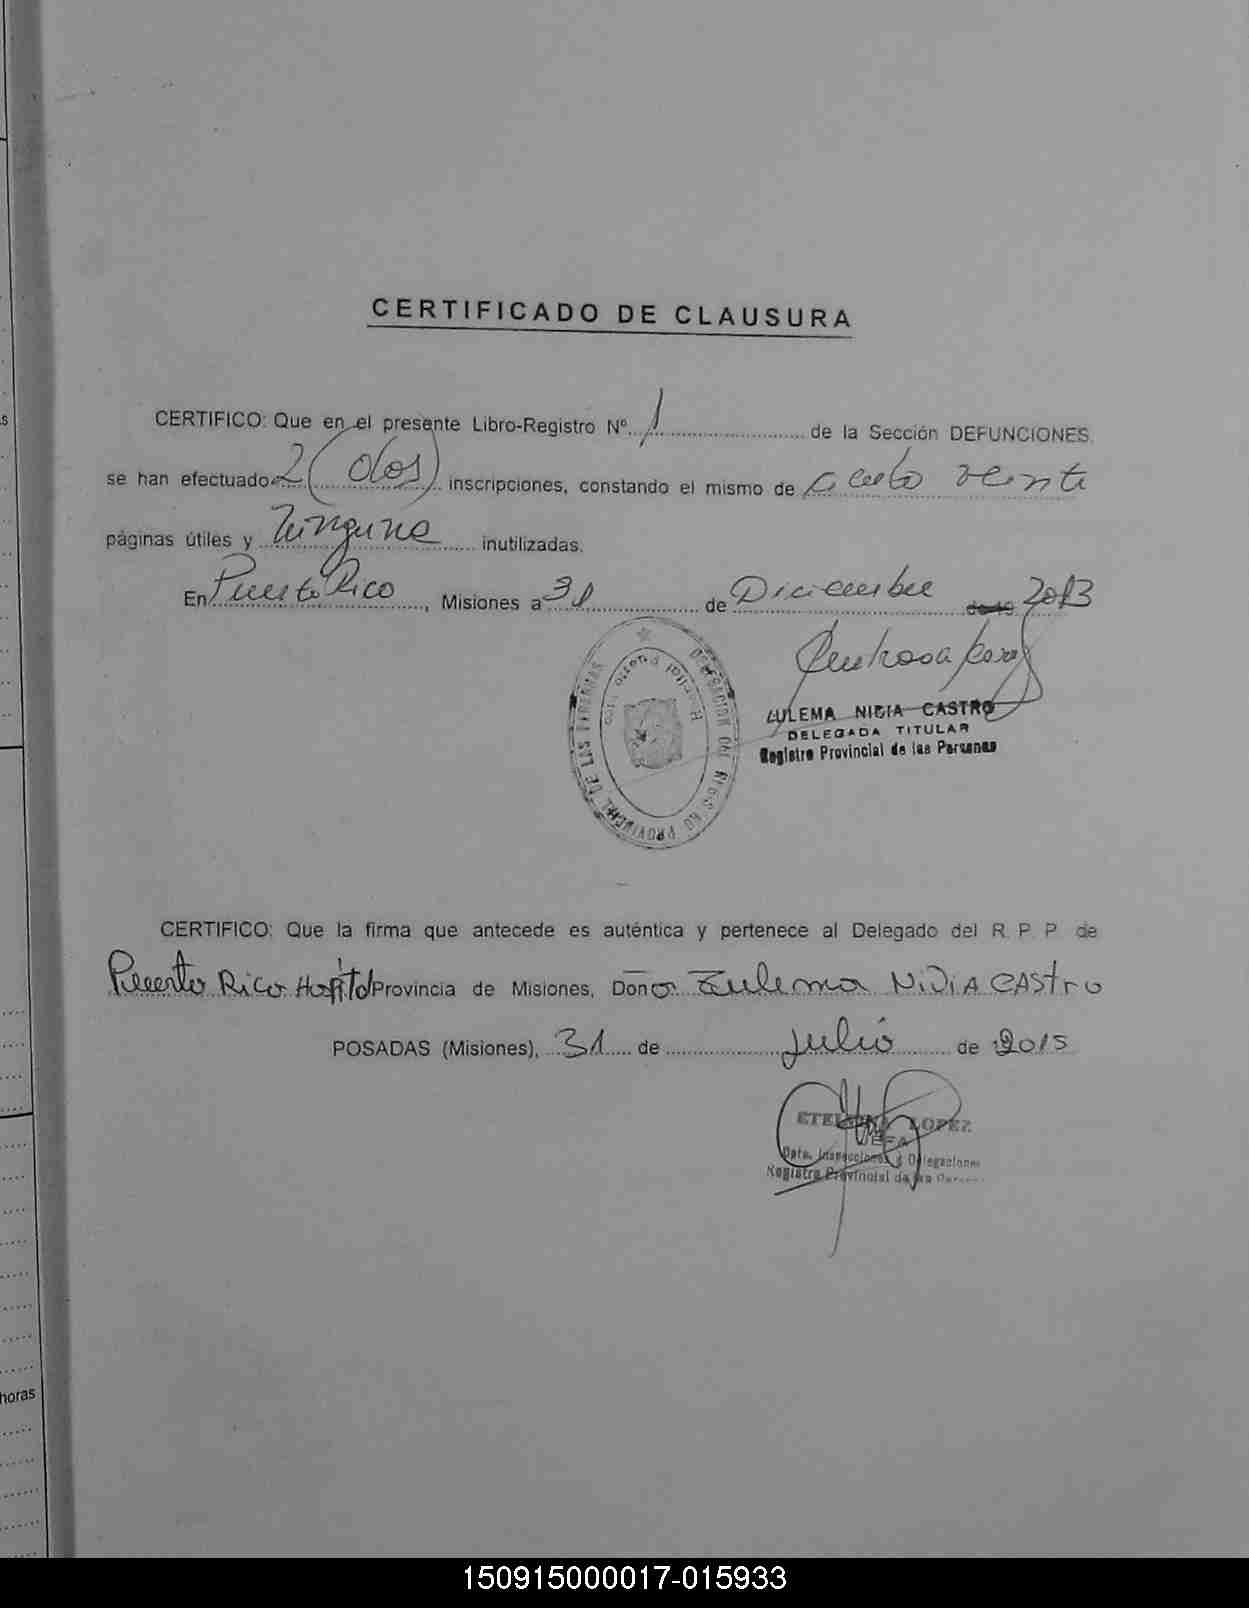 CERTIFICADO DE CLAUSURA
CERTIFICO: Que en el presente Libro-Registro Nº 1 de la Sección DEFUNCIONES.
se han efectuado 2 (dos) inscripciones, constando el mismo de ciento veinte
páginas útiles y ninguna inutilizadas.
En Puerto Rico, Misiones a 31 de Diciembre 2013
ZULEMA NIDIA CASTRO
DELEGADA TITULAR
Registro Provincial de las Personas
DELEGACION DEL REGISTRO PROVINCIAL DE LAS PERSONAS
Hospital Puerto Rico
CERTIFICO: Que la firma que antecede es auténtica y pertenece al Delegado del R. P. P. de
Puerto Rico Hospital Provincia de Misiones, Doña Zulema NiDiA CAStro
POSADAS (Misiones), 31 de Julio de 2015
LOPEZ
JEFA
Dpto. Inspecciones y Delegaciones
Registro Provincial de las Personas
horas
150915000017-015933